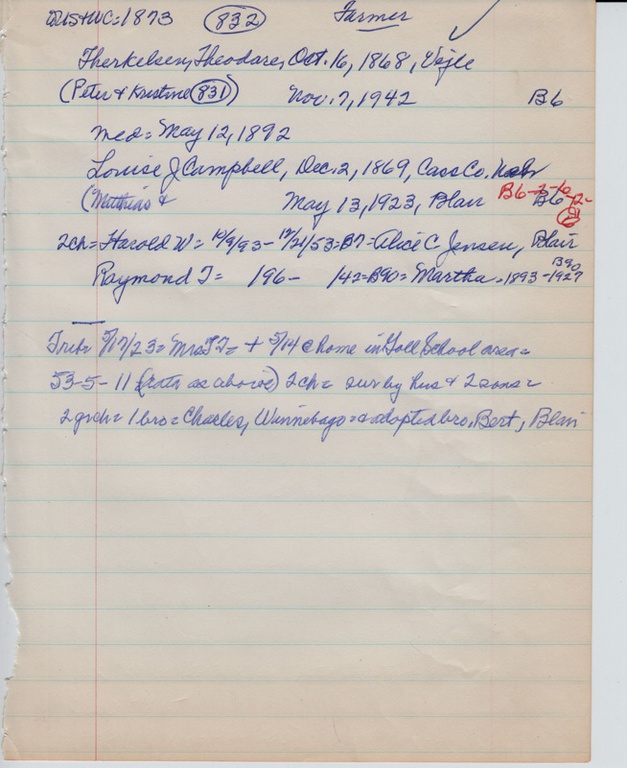 US+WC=1873 (832) Farmer ✓
Therkelsen, Theodore, Oct. 16, 1868, Vejle
(Peter & Kristine (831)) Nov. 7, 1942 B6
md= May 12, 1892
Louise J Campbell, Dec. 2, 1869, Cass Co. Nebr
(Matthias & May 13, 1923, Blair B6
2ch= Harold W= 10/9/93- 12/21/53=B7-Alice C. Jensen, Blair
Raymond T= 196- 142=B90= Martha-1893-1927 B90
Trib= 5/17/23= Mrs TT= + 5/14 @ home in Goll School area=
53-5-11 (rath as above) 2ch= sur by hus & 2 sons=
2 grch= 1 bro= Charles, Winnebago= adopted bro, Bert, Blair